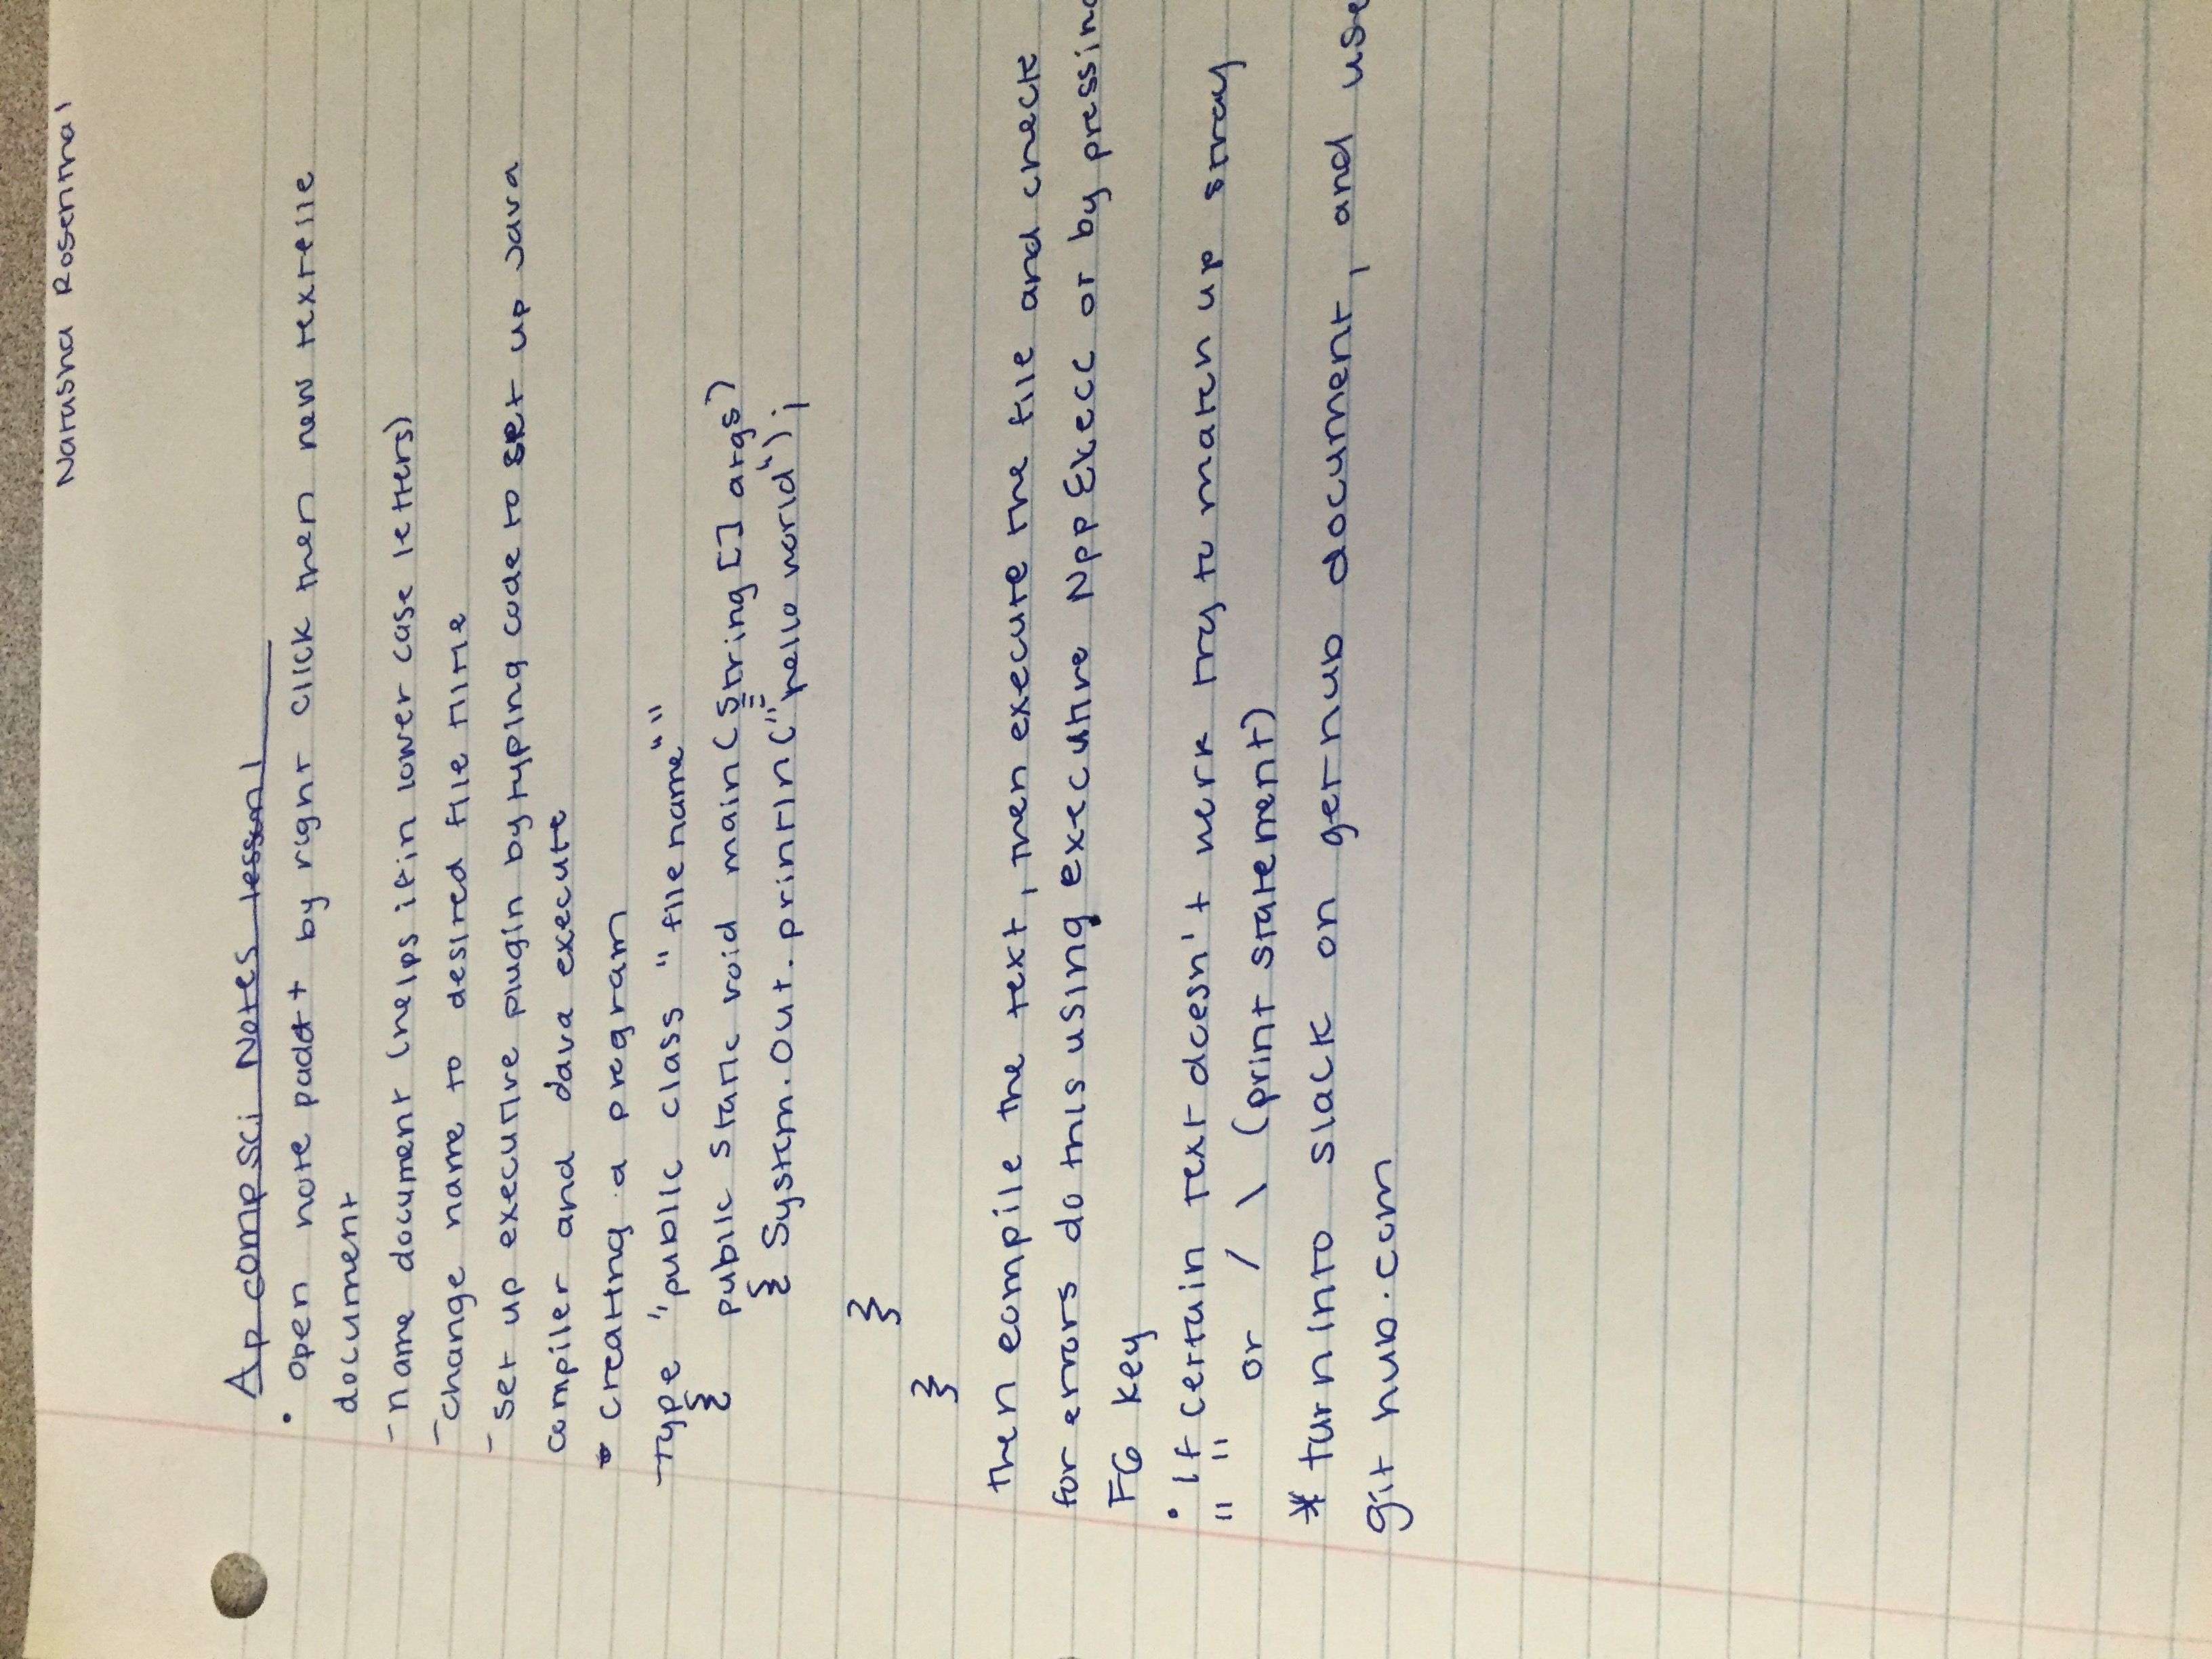 Natasha Rosenthal
Ap compsci Notes lesson 1
• open note pad++ by right click then new textfile
document
- name document (helps if in lower case letters)
- change name to desired file title
- set up executive plugin by typing code to set up Java
compiler and Java execute
• creating a program
- Type "public class "file name""
{ public static void main(String [] args)
{ System.out.println("hello world");
}
}
then compile the text, then execute the file and check
for errors do this using executive Npp Execc or by pressing
F6 key
• If certain text doesn't work try to match up stray
" "
or / \ (print statement)
* turn into slack on gethub document, and use
git hub.com